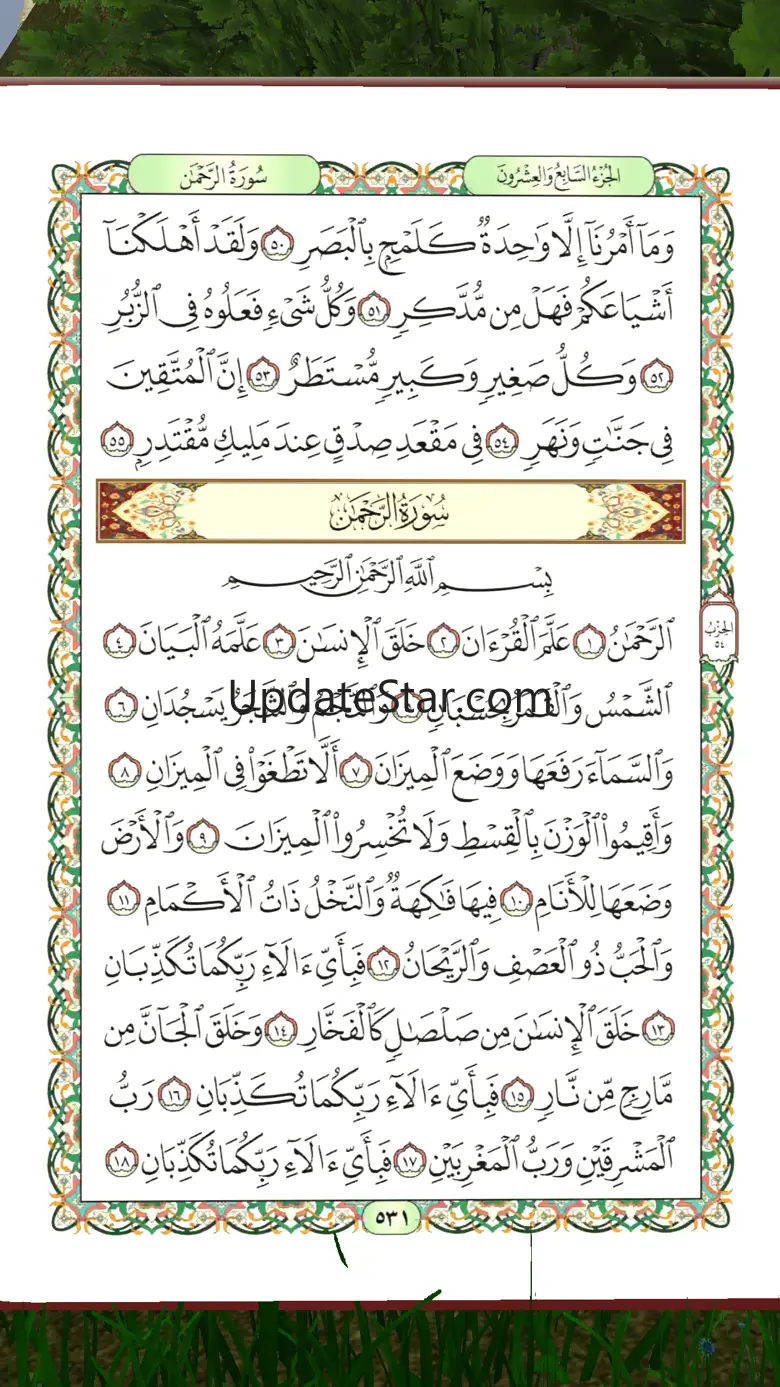 الجزء السابع والعشرون
سورة الرحمن
وَمَآ أَمْرُنَآ إِلَّا وَٰحِدَةٌ كَلَمْحٍۭ بِٱلْبَصَرِ ٥٠ وَلَقَدْ أَهْلَكْنَآ
أَشْيَاعَكُمْ فَهَلْ مِن مُّدَّكِرٍ ٥١ وَكُلُّ شَىْءٍ فَعَلُوهُ فِى ٱلزُّبُرِ
٥٢ وَكُلُّ صَغِيرٍ وَكَبِيرٍ مُّسْتَطَرٌ ٥٣ إِنَّ ٱلْمُتَّقِينَ
فِى جَنَّٰتٍ وَنَهَرٍ ٥٤ فِى مَقْعَدِ صِدْقٍ عِندَ مَلِيكٍ مُّقْتَدِرٍۭ ٥٥
سُورَةُ الرَّحْمَٰن
بِسْمِ ٱللَّهِ ٱلرَّحْمَٰنِ ٱلرَّحِيمِ
ٱلرَّحْمَٰنُ ١ عَلَّمَ ٱلْقُرْءَانَ ٢ خَلَقَ ٱلْإِنسَٰنَ ٣ عَلَّمَهُ ٱلْبَيَانَ ٤
ٱلشَّمْسُ وَٱلْقَمَرُ بِحُسْبَانٍ وَٱلنَّجْمُ وَٱلشَّجَرُ يَسْجُدَانِ ٦
UpdateStar.com
وَٱلسَّمَآءَ رَفَعَهَا وَوَضَعَ ٱلْمِيزَانَ ٧ أَلَّا تَطْغَوْا۟ فِى ٱلْمِيزَانِ ٨
وَأَقِيمُوا۟ ٱلْوَزْنَ بِٱلْقِسْطِ وَلَا تُخْسِرُوا۟ ٱلْمِيزَانَ ٩ وَٱلْأَرْضَ
وَضَعَهَا لِلْأَنَامِ ١٠ فِيهَا فَٰكِهَةٌ وَٱلنَّخْلُ ذَاتُ ٱلْأَكْمَامِ ١١
وَٱلْحَبُّ ذُو ٱلْعَصْفِ وَٱلرَّيْحَانُ ١٢ فَبِأَىِّ ءَالَآءِ رَبِّكُمَا تُكَذِّبَانِ
١٣ خَلَقَ ٱلْإِنسَٰنَ مِن صَلْصَٰلٍ كَٱلْفَخَّارِ ١٤ وَخَلَقَ ٱلْجَآنَّ مِن
مَّارِجٍ مِّن نَّارٍ ١٥ فَبِأَىِّ ءَالَآءِ رَبِّكُمَا تُكَذِّبَانِ ١٦ رَبُّ
ٱلْمَشْرِقَيْنِ وَرَبُّ ٱلْمَغْرِبَيْنِ ١٧ فَبِأَىِّ ءَالَآءِ رَبِّكُمَا تُكَذِّبَانِ ١٨
الحزب
٥٤
٥٣١